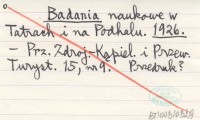 Badania naukowe w
Tatrach i na Podhalu. 1926.
— Prz. Zdroj.-Kąpiel. i Przew.
Turyst. 15, nr 9. Przedruk?